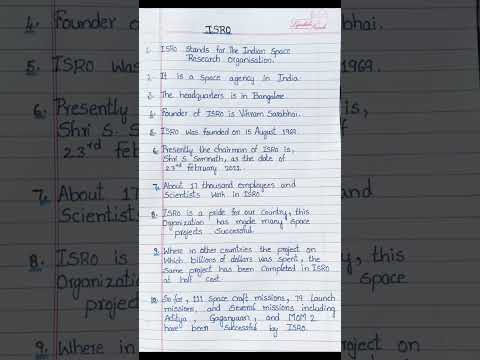 ISRO
1. ISRO stands for The Indian Space
Research Organisation.
2. It is a space agency in India.
3. The headquarters is in Bangalore.
4. Founder of ISRO is Vikram Sarabhai.
5. ISRO was founded on 15 August 1969.
6. Presently the chairman of ISRO is,
Shri S. Somnath, as the date of
23rd february 2022.
7. About 17 thousand employees and
Scientists work in ISRO.
8. ISRO is a pride for our country, this
Organization has made many space
projects Successful.
9. Where in other countries the project on
which billions of dollars was spent, the
same project has been completed in ISRO
at half cost.
10. So far, 111 space craft missions, 79 launch
missions, and several missions including
Aditya, Gaganyaan, and MOM 2
have been successful by ISRO.
4. Founder
5. ISRO was
6. Presently
Shri S.
23rd feb
7. About 17
Scientists
8. ISRO is
Organiza
project
9. Where in
bhai.
1969.
is,
f
d
this
space
project on